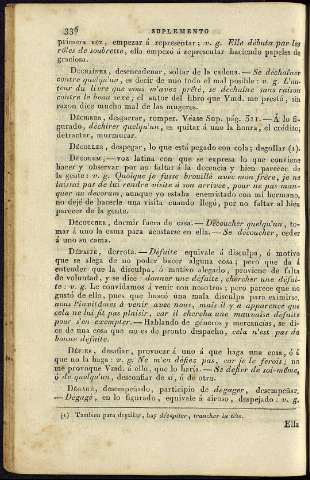 336 SUPLEMENTO
primera vez, empezar á representar; v. g. Elle débuta par les
rôles de soubrette, ella empezó á representar haciendo papeles de
graciosa.
DÉCHAÎNER, desencadenar, soltar de la cadena. — Se déchaîner
contre quelqu'un, es decir de uno todo el mal posible: v. g. L'au-
teur du livre que vous m'avez prêté, se déchaîne sans raison
contre le beau sexe; el autor del libro que Vmd. me prestó, sin
razon dice mucho mal de las mugeres.
DÉCHIRER, desgarrar, romper. Véase Sup. pág. 321. — Á lo fi-
gurado, déchirer quelqu'un, es quitar á uno la honra, el crédito;
detractar, murmurar.
DÉCOLLER, despegar, lo que está pegado con cola; degollar (1).
DECORUM; — voz latina con que se expresa lo que conviene
hacer y observar por no faltar á la decencia y bien parecer de
la gente: v. g. Quoique je fusse brouillé avec mon frère, je ne
laissai pas de lui rendre visite à son arrivée, pour ne pas man-
quer au decorum, aunque yo estaba enemistado con mi hermano,
no dejé de hacerle una visita cuando llegó, por no faltar al bien
parecer de la gente.
DÉCOUCHER, dormir fuera de casa. — Découcher quelqu'un, to-
mar á uno la cama para acostarse en ella. — Se découcher, ceder
á uno su cama.
DÉFAITE, derrota. — Défaite equivale á disculpa, ó motivo
que se alega de no poder hacer alguna cosa; pero que da á
entender que la disculpa, ó motivo alegado, proviene de falta
de voluntad, y se dice donner une défaite, chercher une défai-
te: v. g. Le convidamos á venir con nosotros; pero parece que no
gustó de ello, pues que buscó una mala disculpa para eximirse,
nous l'invitâmes à venir avec nous, mais il y a apparence que
cela ne lui fit pas plaisir, car il chercha une mauvaise défaite
pour s'en exempter. — Hablando de géneros y mercancías, se di-
ce de una cosa que no es de pronto despacho, cela n'est pas de
bonne défaite.
DÉFIER, desafiar, provocar á uno á que haga una cosa, ó á
que no la haga: v. g. Ne m'en défiez pas, car je le ferois; no
me provoque Vmd. á ello, que lo haria. — Se défier de soi-même,
ó de quelqu'un, desconfiar de sí, ó de otro.
DÉGAGÉ, desempeñado, participio de dégager, desempeñar.
— Dégagé, en lo figurado, equivale á airoso, despejado: v. g.
(1) Tambien para degollar, hay décapiter, trancher la tête.
Ella